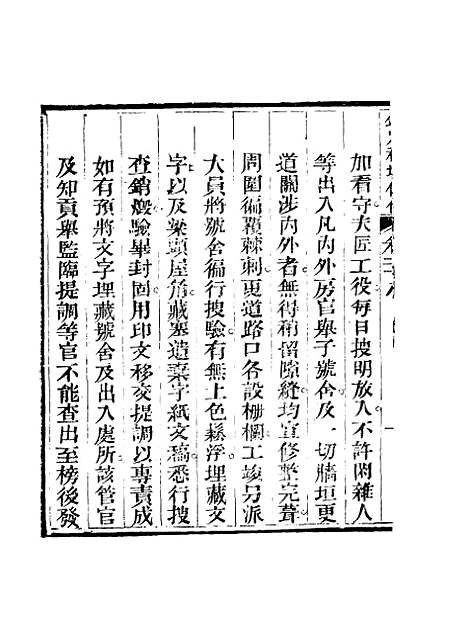 加看守夫匠工役每日搜明放入不許閑雜人
等出入凡內外房官舉子號舍及一切牆垣更
道關涉內外者無得稍留隙縫均宜修整完葺
周圍徧覆棘刺更道路口各設柵欄工竣另派
大員將號舍徧行搜驗有無上色鬆浮埋藏文
字以及梁頭屋角藏塞遺棄字紙文稿悉行搜
查銷燬驗畢封固用印文移交提調以專責成
如有預將文字埋藏號舍及出入處所該管官
及知貢舉監臨提調等官不能查出至榜後發